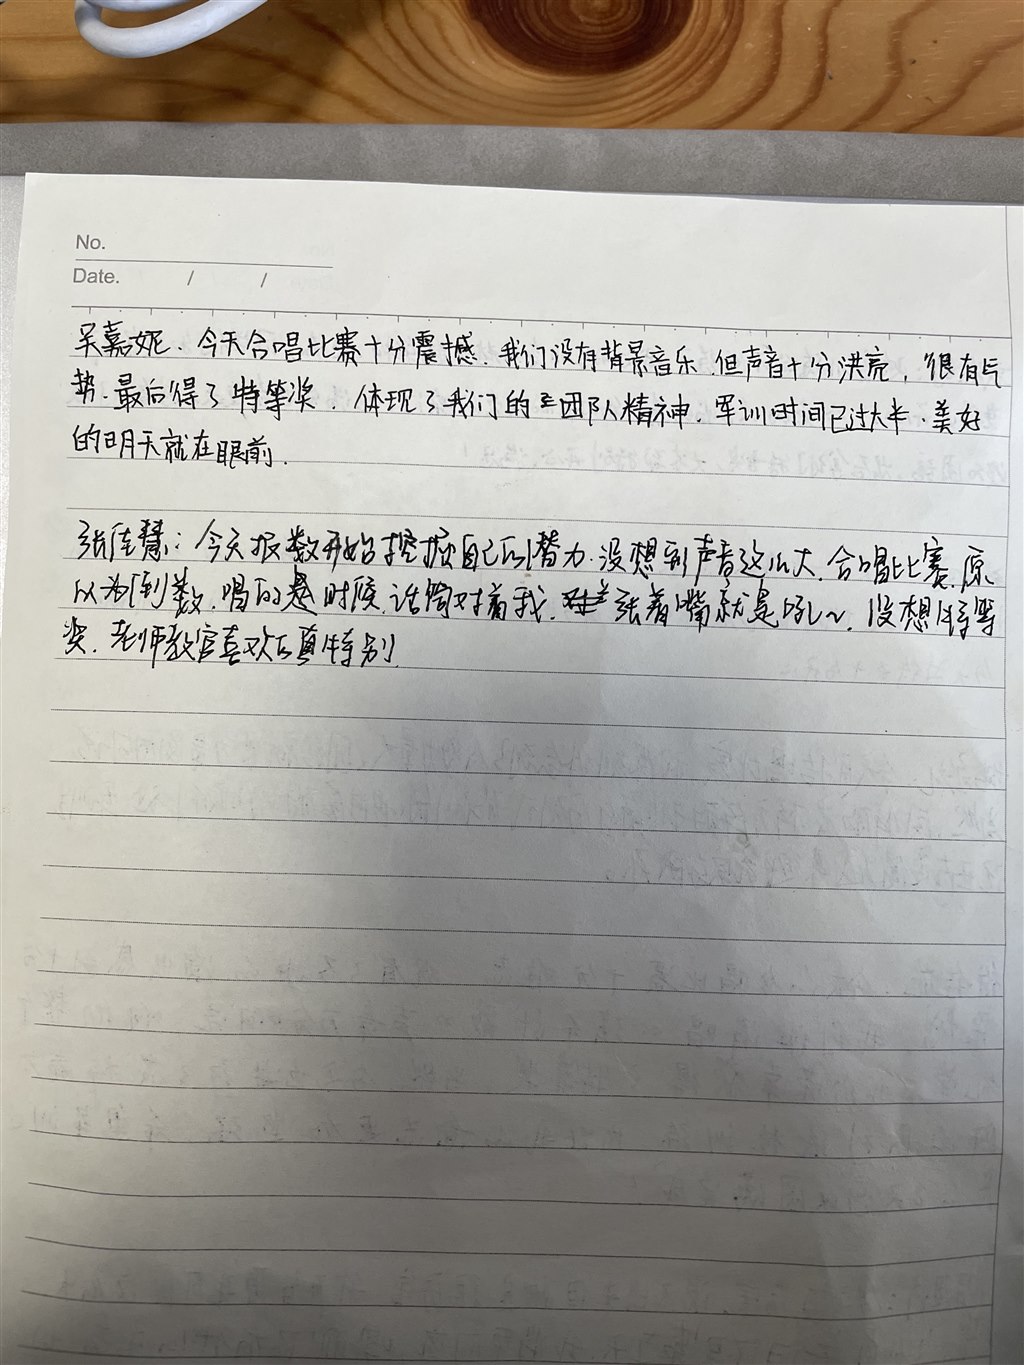 No.
Date. / /
吴嘉妮. 今天合唱比赛十分震撼. 我们没有背景音乐. 但声音十分洪亮, 很有气
势. 最后得了特等奖. 体现了我们的团队精神. 军训时间已过大半. 美好
的明天就在眼前.
张佳慧: 今天报数开始挖掘自己的潜力. 没想到声音这么大. 合唱比赛. 原
以为倒数. 唱的是时候. 话筒对着我. 张着嘴就是吼~. 没想特等
奖. 老师教官喜欢的真特别